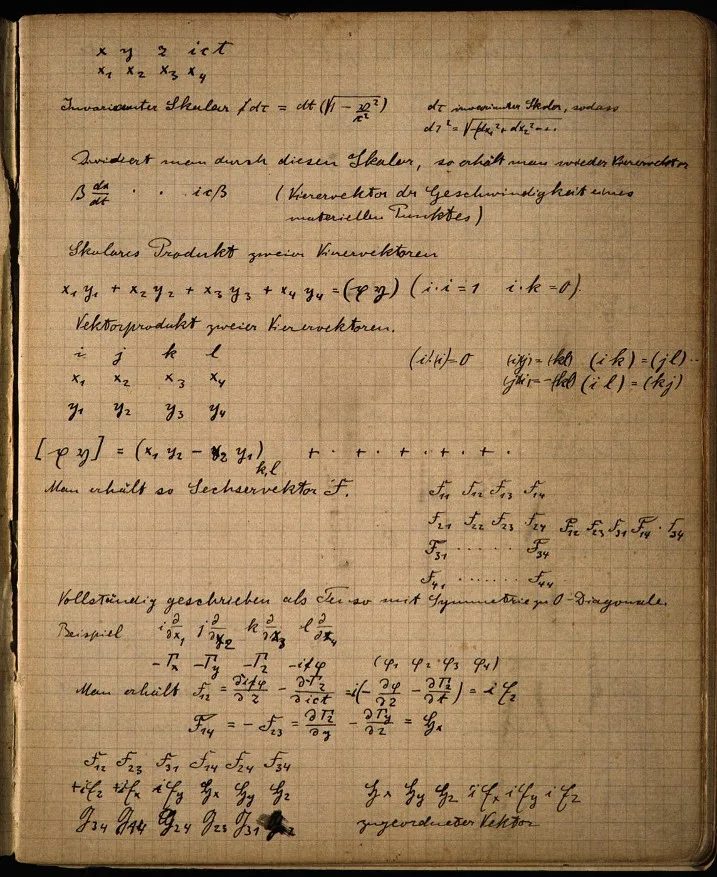 x y z ict
x₁ x₂ x₃ x₄
Invarianter Skalar dτ = dt(√1 − v²/c²) dτ invarianter Skalar, sodass
dτ² = √−dx₁² + dx₂² − ..
Dividiert man durch diesen Skalar, so erhält man wieder Vierervektor
β dx/dt · · icβ (Vierervektor der Geschwindigkeit eines
materiellen Punktes)
Skalares Produkt zweier Vierervektoren
x₁ y₁ + x₂ y₂ + x₃ y₃ + x₄ y₄ = (φ y) (i·i = 1 i·k = 0).
Vektorprodukt zweier Vierervektoren.
i j k l (ii) = 0 (ij) = (kl) (ik) = (jl) ..
x₁ x₂ x₃ x₄ (ji) = −(kl) (il) = (kj)
y₁ y₂ y₃ y₄
[φ y] = (x₁ y₂ − x₂ y₁)k,l + · + · + · + · + ·
Man erhält so Sechservektor F.
F₁₁ F₁₂ F₁₃ F₁₄
F₂₁ F₂₂ F₂₃ F₂₄ F₁₂ F₂₃ F₃₁ F₁₄ · F₃₄
F₃₁ ...... F₃₄
F₄₁ ....... F₄₄
Vollständig geschrieben als Tensor mit Symmetrie 0-Diagonale.
Beispiel i ∂/∂x₁ j ∂/∂x₂ k ∂/∂x₃ l ∂/∂x₄
−Γx −Γy −Γz −iφ (φ₁ φ₂ φ₃ φ₄)
Man erhält F₁₂ = ∂iφ/∂z − ∂Γz/∂ict = i(−∂φ/∂z − ∂Γz/∂t) = i𝔈z
F₁₄ = −F₂₃ = ∂Γz/∂y − ∂Γy/∂z = 𝔥x
F₁₂ F₂₃ F₃₁ F₁₄ F₂₄ F₃₄
+i𝔈z +i𝔈x i𝔈y 𝔥x 𝔥y 𝔥z 𝔥x 𝔥y 𝔥z i𝔈x i𝔈y i𝔈z
J₃₄ J₁₄ J₂₄ J₂₃ J₃₁ zugeordneter Vektor